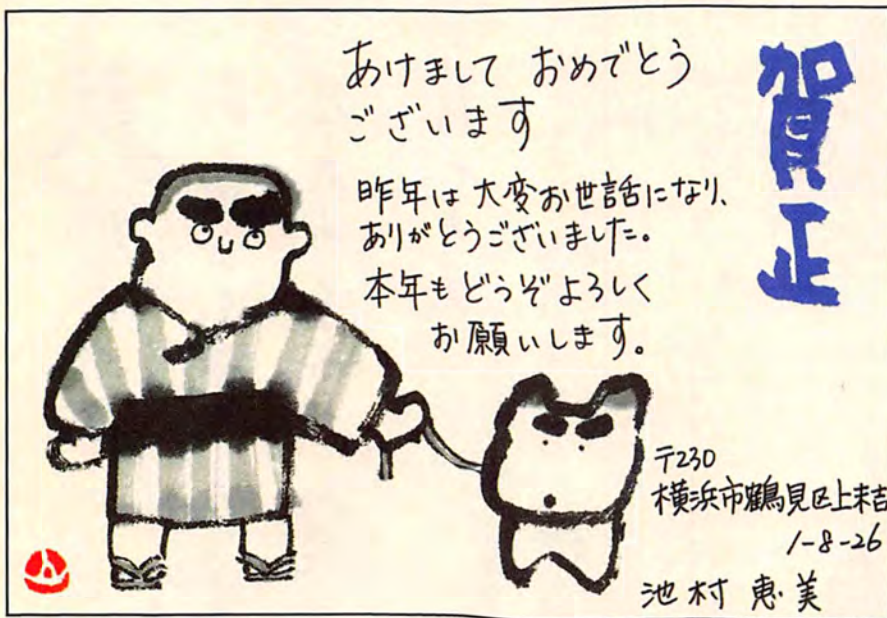 賀正
あけまして おめでとう
ございます
昨年は大変お世話になり、
ありがとうございました。
本年もどうぞよろしく
お願いします。
〒230
横浜市鶴見区上末吉
1-8-26
池村 恵美